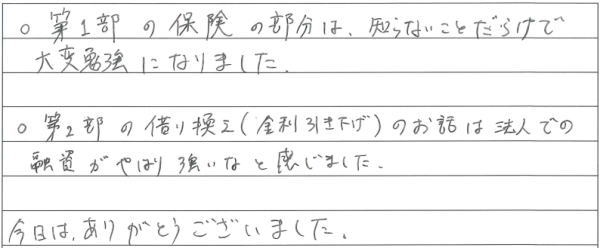 ○ 第1部の保険の部分は、知らないことだらけで
大変勉強になりました。
○ 第2部の借り換え(金利引き下げ)のお話は法人での
融資がやはり強いなと感じました。
今日は、ありがとうございました。